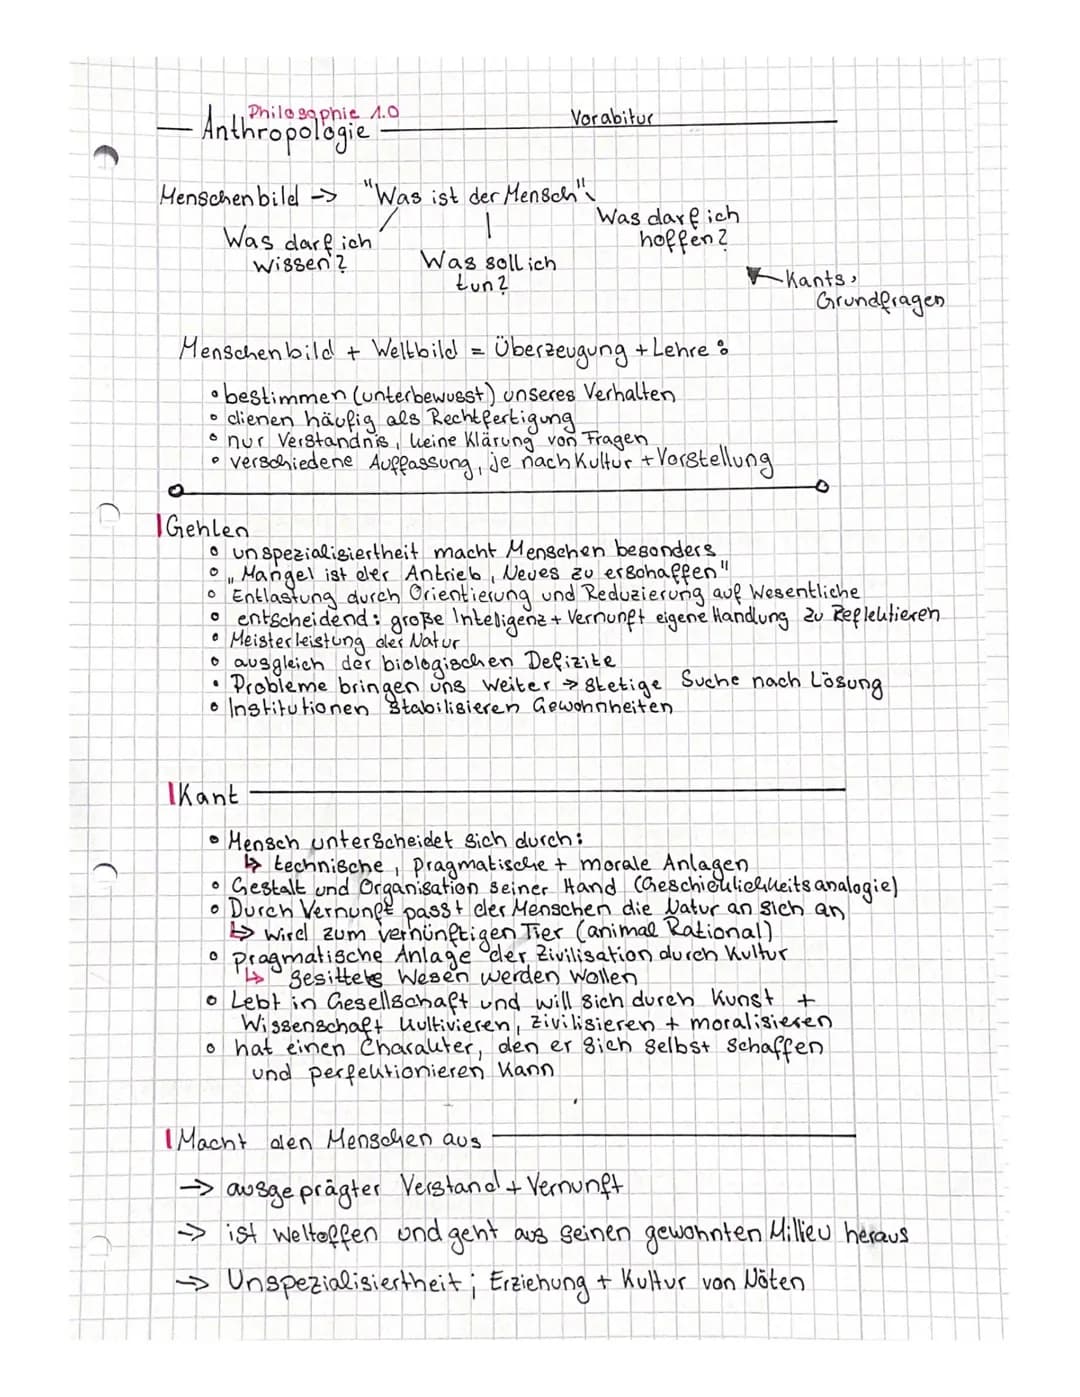 Philosophie 1.0
Anthropologie
Vorabitur
Menschenbild -> "Was ist der Mensch"
Was darf ich wissen?
Was soll ich tun?
Was darf ich hoffen?
Kants Grundfragen
Menschenbild + Weltbild = Überzeugung + Lehre:
• bestimmen (unterbewusst) unseres Verhalten
• dienen häufig als Rechtfertigung
• nur Verständnis, keine Klärung von Fragen
• verschiedene Auffassung, je nach Kultur + Vorstellung
Gehlen
• unspezialisiertheit macht Menschen besonders
• „Mangel ist der Antrieb, Neues zu erschaffen"
• Entlastung durch Orientierung und Reduzierung auf Wesentliche
• entscheidend: große Inteligenz + Vernunft eigene Handlung zu Reflektieren
• Meisterleistung der Natur
• ausgleich der biologischen Defizite
• Probleme bringen uns weiter -> stetige Suche nach Lösung
• Institutionen stabilisieren Gewohnheiten
Kant
• Mensch unterscheidet sich durch:
↳ technische, pragmatische + morale Anlagen
• Gestalt und Organisation seiner Hand (Geschicklichkeitsanalogie)
• Durch Vernunft passt der Menschen die Natur an sich an
↳ wird zum vernünftigen Tier (animal Rational)
• pragmatische Anlage der Zivilisation durch Kultur
↳ gesittete Wesen werden wollen
• Lebt in Gesellschaft und will sich durch Kunst +
Wissenschaft kultivieren, zivilisieren + moralisieren
• hat einen Charakter, den er sich selbst schaffen
und perfektionieren kann
Macht den Menschen aus
-> ausgeprägter Verstand + Vernunft
-> ist weltoffen und geht aus seinen gewohnten Millieu heraus
-> Unspezialisiertheit; Erziehung + Kultur von Nöten